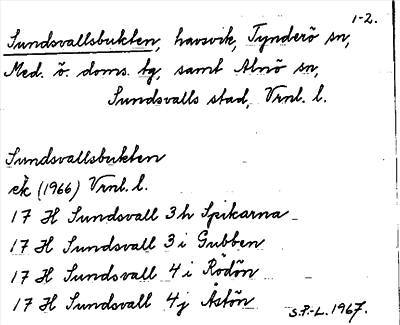 1-2.
Sundsvallsbukten, havsvik, Tynderö sn,
Med. ö. doms. tg, samt Alnö sn,
Sundsvalls stad, Vrnl. l.
Sundsvallsbukten
ek (1966) Vrnl. l.
17 H Sundsvall 3 h Spikarna
17 H Sundsvall 3 i Gubben
17 H Sundsvall 4 i Rödön
17 H Sundsvall 4 j Åstön
S.P.-L. 1967.